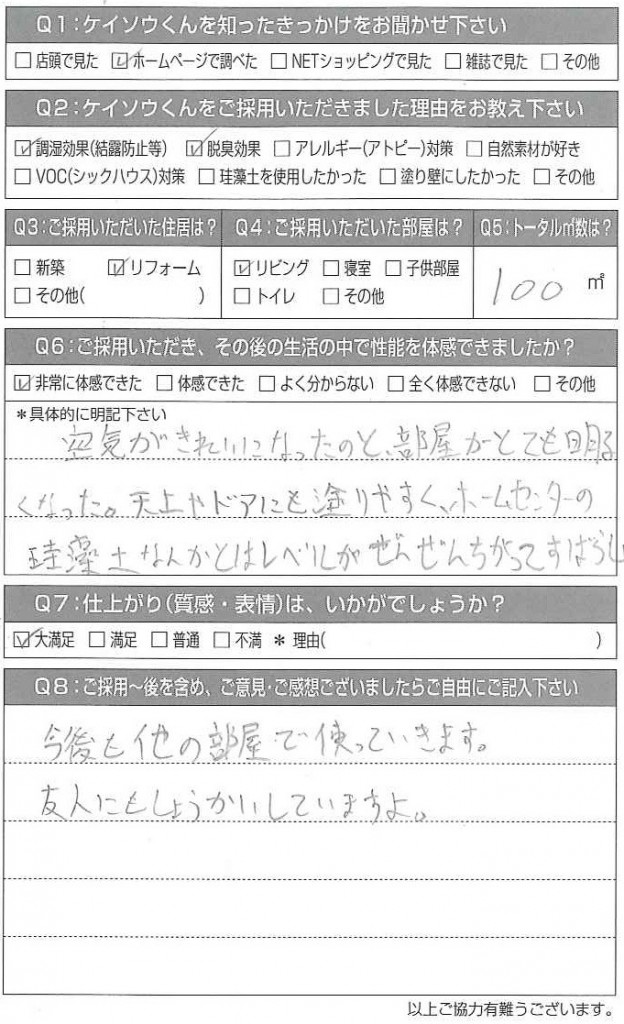 Q1：ケイソウくんを知ったきっかけをお聞かせ下さい
□店頭で見た ☑ホームページで調べた □NETショッピングで見た □雑誌で見た □その他
Q2：ケイソウくんをご採用いただきました理由をお教え下さい
☑調湿効果(結露防止等) ☑脱臭効果 □アレルギー(アトピー)対策 □自然素材が好き
□VOC(シックハウス)対策 □珪藻土を使用したかった □塗り壁にしたかった □その他
Q3：ご採用いただいた住居は？ Q4：ご採用いただいた部屋は？ Q5：トータル㎡数は？
□新築 ☑リフォーム ☑リビング □寝室 □子供部屋 100㎡
□その他( ) □トイレ □その他
Q6：ご採用いただき、その後の生活の中で性能を体感できましたか？
☑非常に体感できた □体感できた □よく分からない □全く体感できない □その他
＊具体的に明記下さい
空気がきれいになったのと、部屋がとても明る
くなった。天上やドアにも塗りやすく、ホームセンターの
珪藻土なんかとはレベルがぜんぜんちがってすばらし
Q7：仕上がり(質感・表情)は、いかがでしょうか？
☑大満足 □満足 □普通 □不満 ＊理由( )
Q8：ご採用〜後を含め、ご意見・ご感想ございましたらご自由にご記入下さい
今後も他の部屋で使っていきます。
友人にもしょうかいしていますよ。
以上ご協力有難うございます。